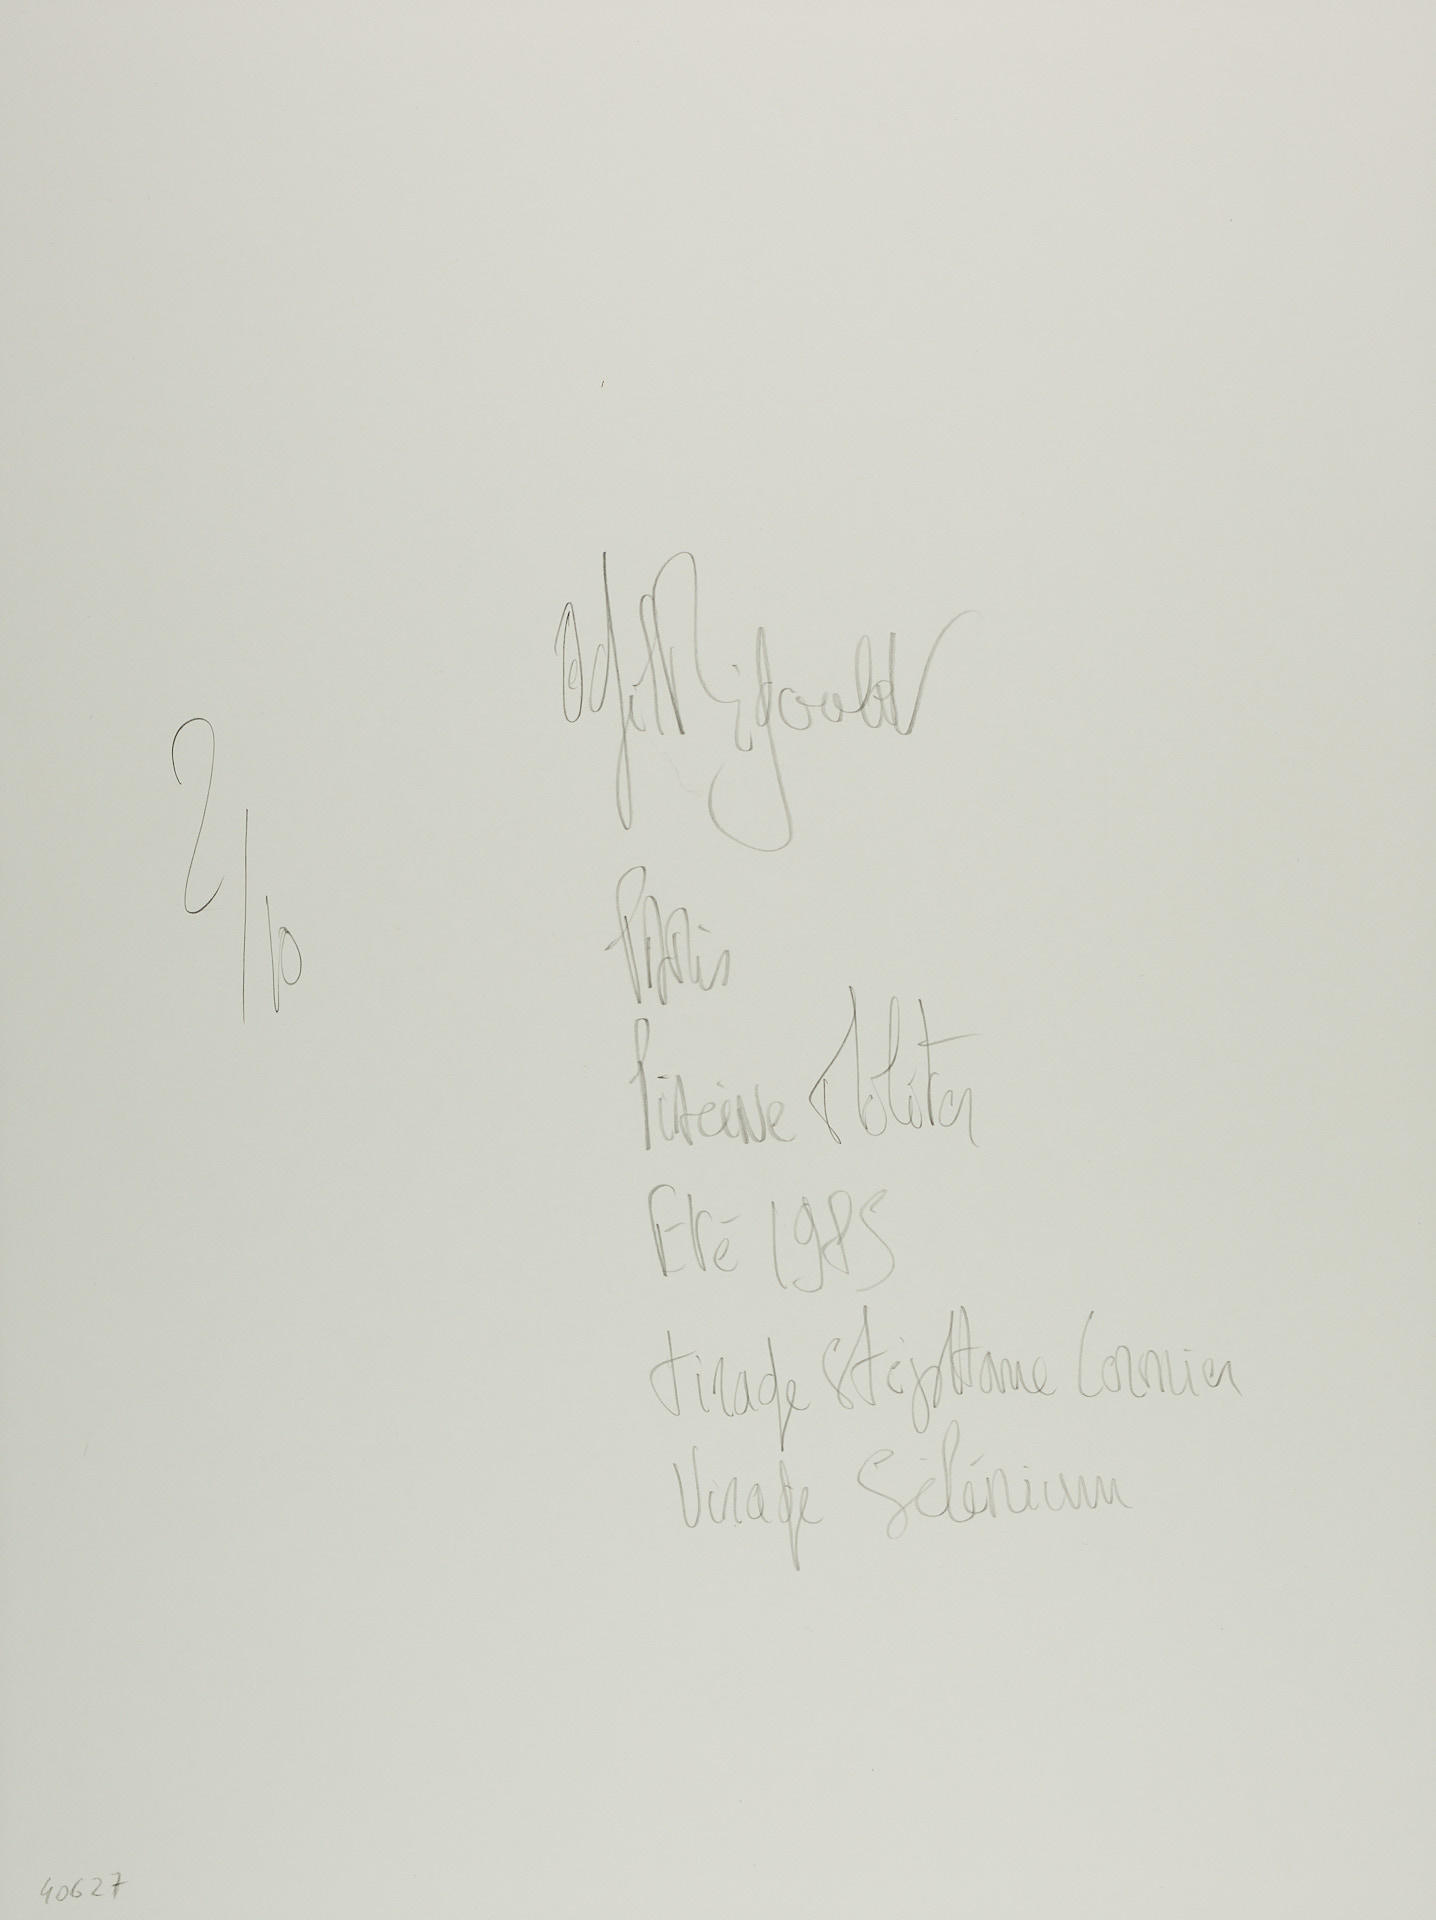 2/10
Paris
Piscine Molitor
Eté 1985
tirage Stéphane Cormier
Virage Sélénium
40627